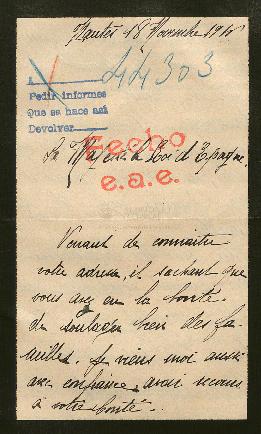 Nantes 18 Novembre 1915
44303
A
Pedir informes
Que se hace así
Devolver
Fecho
e.a.e.
Sa Majesté le Roi d'Espagne,
Venant de connaitre
votre adresse, et sachant que
vous avez eu la bonté
de soulager bien des fa-
milles. Je viens moi aussi
avec confiance avoir recours
à votre bonté.